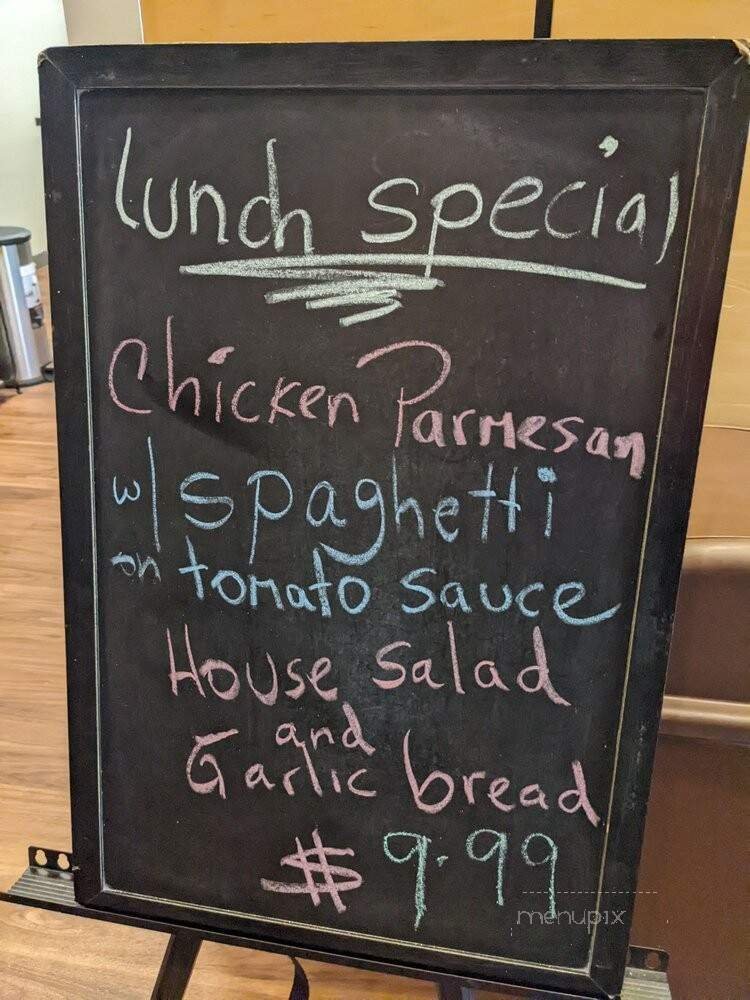 Lunch special
Chicken Parmesan
w/ spaghetti
on tomato sauce
House Salad
and
Garlic bread
$ 9.99
menupix